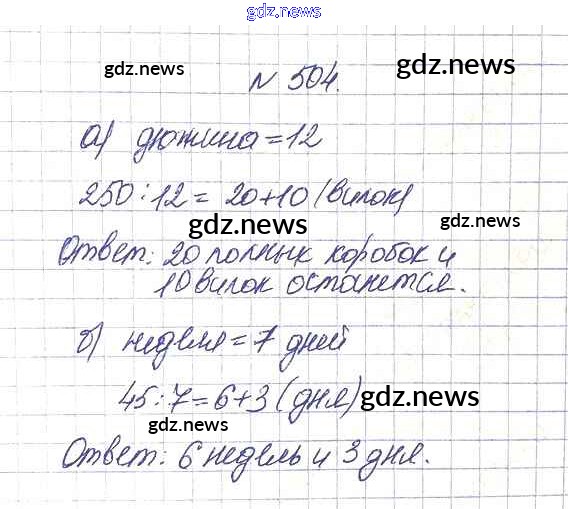 gdz.news
gdz.news
gdz.news
№ 504.
а) дюжина = 12
250 : 12 = 20 + 10 (вилок)
gdz.news
gdz.news
Ответ: 20 полных коробок и
10 вилок останется.
б) неделя = 7 дней
45 : 7 = 6 + 3 (дня)
gdz.news
gdz.news
Ответ: 6 недель и 3 дня.